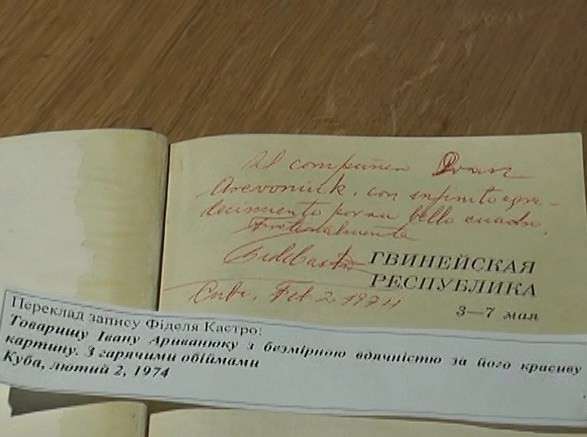 Al compañero Ivan
Arevoniuk, con infinito agra-
decimiento por su bello cuadro.
Fraternalmente
Fidel Castro
Cuba, Feb 2 1974
ГВИНЕЙСКАЯ
РЕСПУБЛИКА
3—7 мая
Переклад запису Фіделя Кастро:
Товаришу Івану Ариванюку з безмірною вдячністю за його красиву
картину. З гарячими обіймами
Куба, лютий 2, 1974